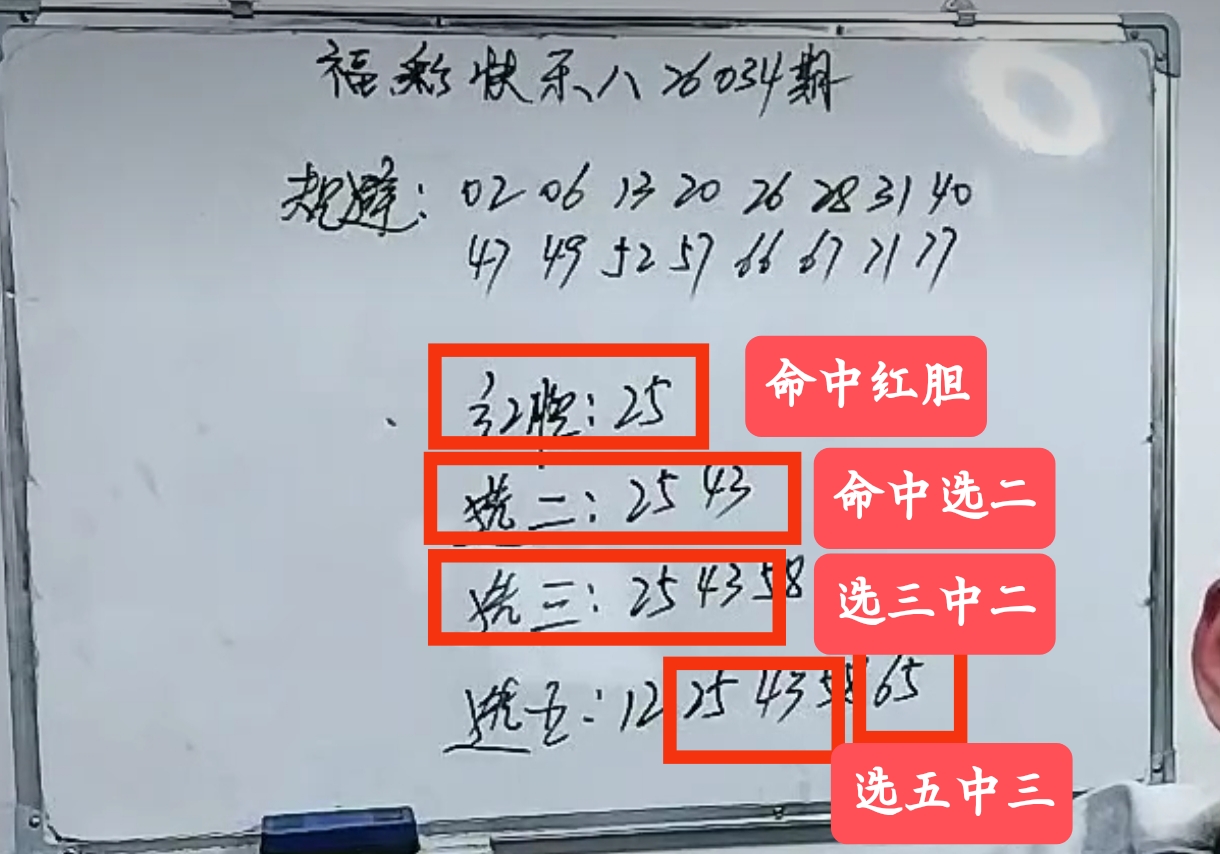 福彩快乐八 26034期
规避: 02 06 13 20 26 28 31 40
47 49 52 57 66 67 71 77
红胆: 25
命中红胆
选二: 25 43
命中选二
选三: 25 43 58
选三中二
选五: 12 25 43 58 65
选五中三